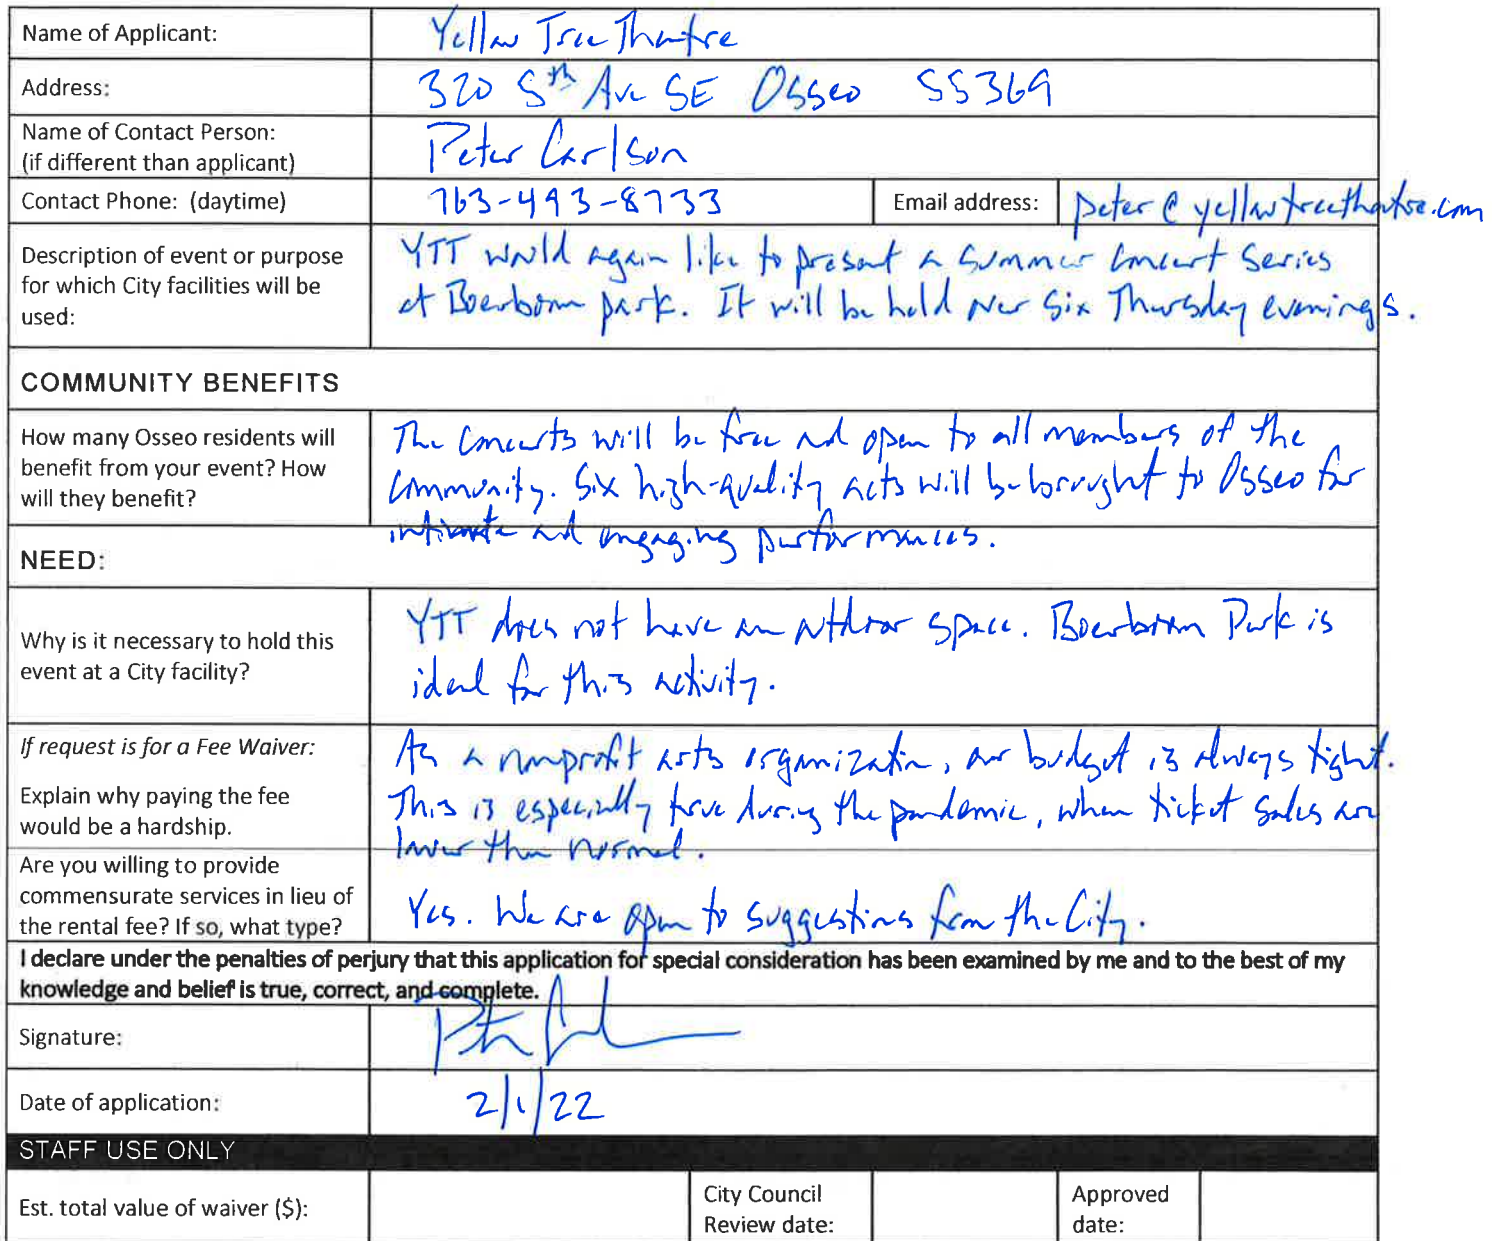 Name of Applicant: Yellow Tree Theatre
Address: 320 5th Ave SE Osseo 55369
Name of Contact Person:
(if different than applicant) Peter Carlson
Contact Phone: (daytime) 763-493-8733 Email address: peter@yellowtreetheatre.com
Description of event or purpose
for which City facilities will be
used:
YTT would again like to present a summer concert series
at Boerboom park. It will be held over six Thursday evenings.
COMMUNITY BENEFITS
How many Osseo residents will
benefit from your event? How
will they benefit?
The concerts will be free and open to all members of the
community. Six high-quality acts will be brought to Osseo for
intimate and engaging performances.
NEED:
Why is it necessary to hold this
event at a City facility?
YTT does not have an outdoor space. Boerboom Park is
ideal for this activity.
If request is for a Fee Waiver:
Explain why paying the fee
would be a hardship.
As a nonprofit arts organization, our budget is always tight.
This is especially true during the pandemic, when ticket sales are
lower than normal.
Are you willing to provide
commensurate services in lieu of
the rental fee? If so, what type?
Yes. We are open to suggestions from the City.
I declare under the penalties of perjury that this application for special consideration has been examined by me and to the best of my
knowledge and belief is true, correct, and complete.
Signature:
Date of application: 2/1/22
STAFF USE ONLY
Est. total value of waiver ($):
City Council
Review date:
Approved
date: